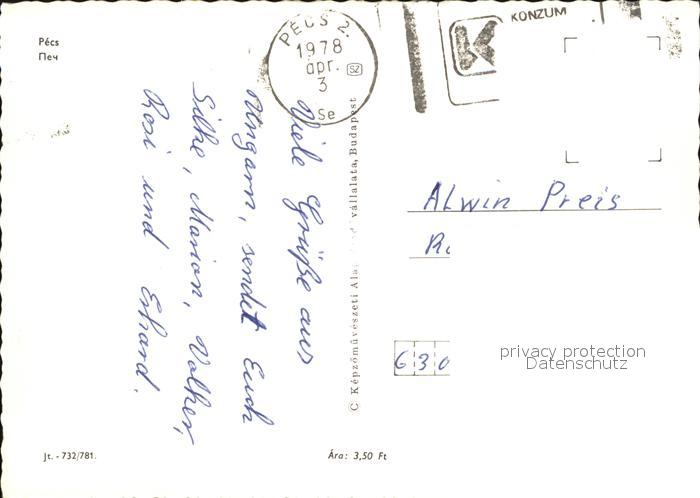 Pécs
Печ
PÉCS 2.
1978
ápr. SZ
3
Se
KONZUM
Viele Grüße aus
Ungarn, sendet Euch
Silke, Marion, Volker,
Rosi und Erhard.
C Képzőművészeti Ala vállalata, Budapest
Alwin Preis
630
privacy protection
Datenschutz
Jt. - 732/781.
Ára: 3,50 Ft